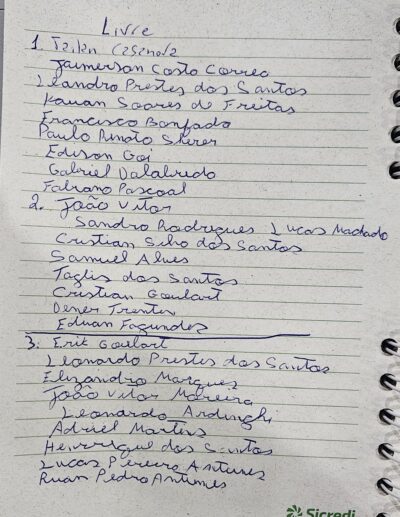 Livre
1. Tailan Casanova
Jaimerson Costa Correa
Leandro Prestes dos Santos
Kauan Soares de Freitas
Francisco Bonfado
Paulo Renato Sherer
Edison Goi
Gabriel Dalabredo
Fabiano Pascoal
2. João Vitor
Sandro Rodrigues Lucas Machado
Cristian Silva dos Santos
Samuel Alves
Taglis dos Santos
Cristian Goulart
Dener Trentin
Eduan Fagundes
3. Erik Goulart
Leonardo Prestes dos Santos
Elizandro Marques
João Vitor Moreira
Leonardo Ardenghi
Adriel Martins
Henrrique dos Santos
Lucas Pereira Antunes
Ruan Pedro Antunes
Sicredi